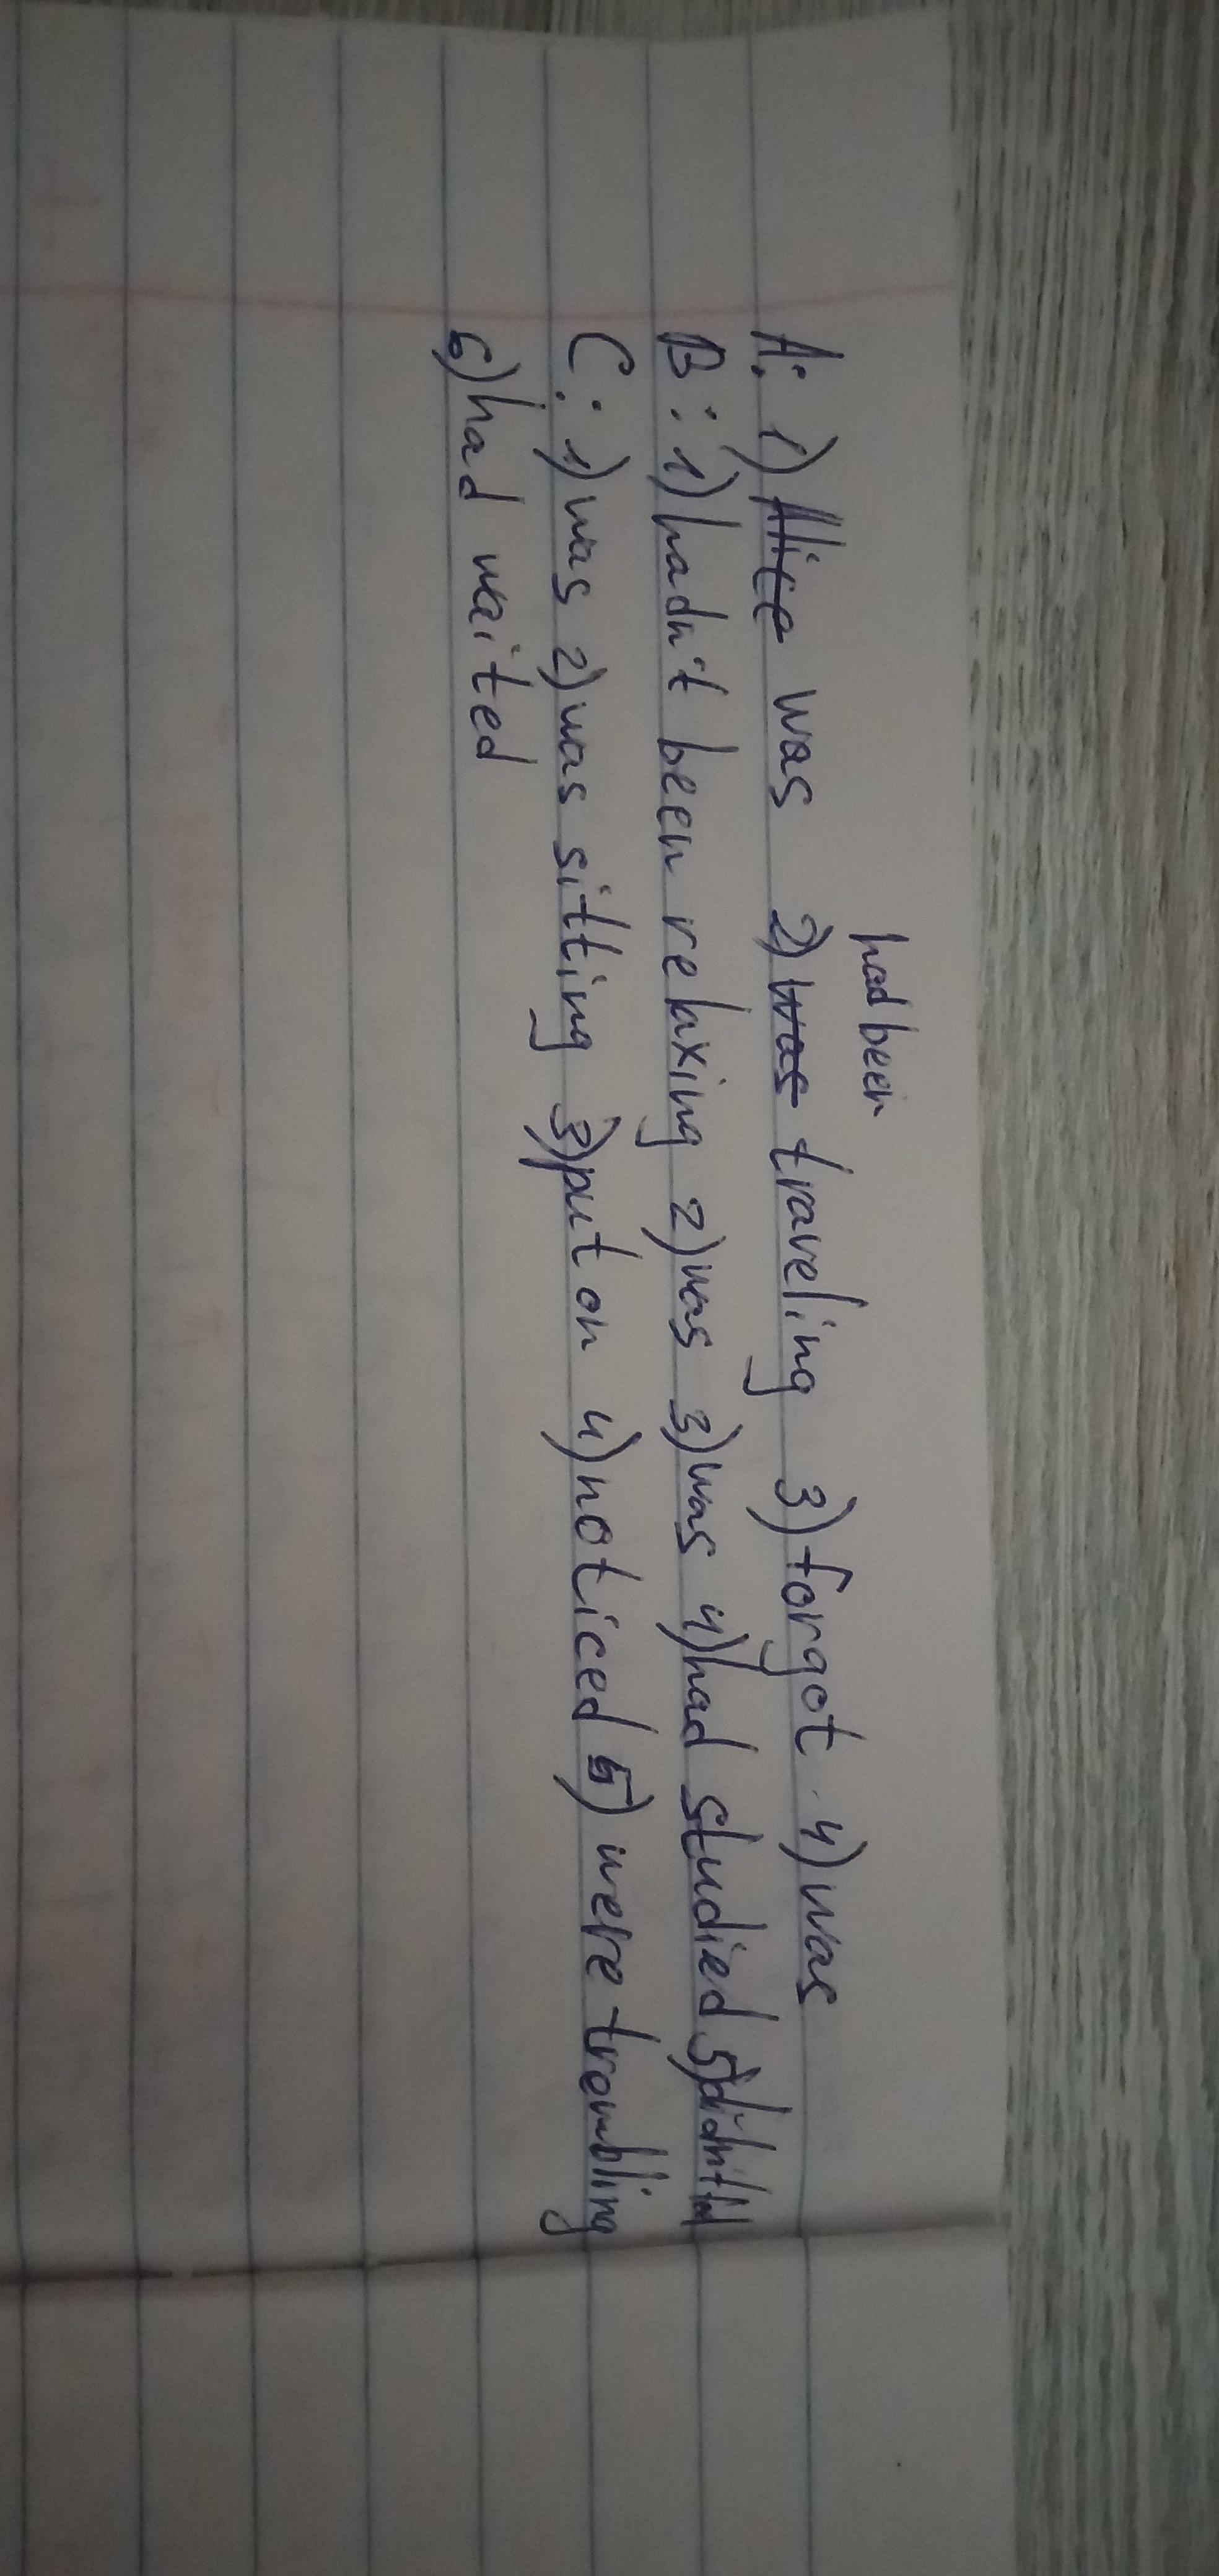 had been
A: 1) Alice was 2) was traveling 3) forgot 4) was
B: 1) hadn't been relaxing 2) was 3) was 4) had studied 5) didn't
C: 1) was 2) was sitting 3) put on 4) noticed 5) were trembling
6) had waited